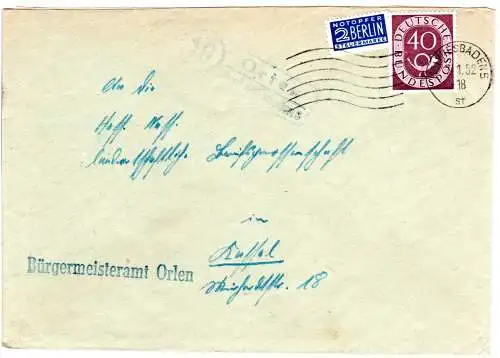 NOTOPFER
2 BERLIN
STEUERMARKE
DEUTSCHE
BUNDESPOST
40
WIESBADEN 5
1.52
18
st
(16) Orlen
An die
Hess. Nass.
landwirtschaftliche Berufsgenossenschaft
in
Kassel
18
Bürgermeisteramt Orlen